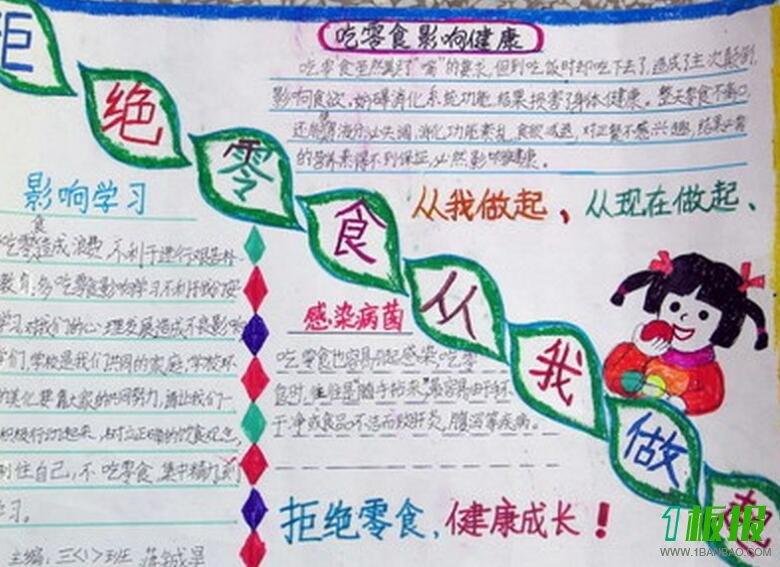 拒绝零食从我做起
吃零食影响健康
吃零食虽然满足了“嘴”的要求,但到吃饭时却吃不下去了,造成了主次颠倒,
影响食欲,妨碍消化系统功能,结果损害了身体健康。整天零食不离口,
还能使胃液分泌失调,消化功能紊乱,食欲减退,对正餐不感兴趣,结果必需
的营养素得不到保证,必然影响健康。
从我做起,从现在做起、
影响学习
吃零食造成浪费,不利于进行艰苦朴
教育。多吃零食影响学习不利于我们安
学习,对我们的心理发展造成不良影响
学们,学校是我们共同的家庭,学校环
的美化要靠大家的共同努力,请让我们一
积极行动起来,树立正确的饮食观念,
到住自己,不吃零食,集中精力,
学习。
主编:三〈1〉班
感染病菌
吃零食也容易引起感染,吃零
食时,往往是“随手拈来”,最容易由于手
干净或食品不洁而致肝炎,腹泻等疾病。
拒绝零食,健康成长!
1板报
WWW.1BANBAO.COM